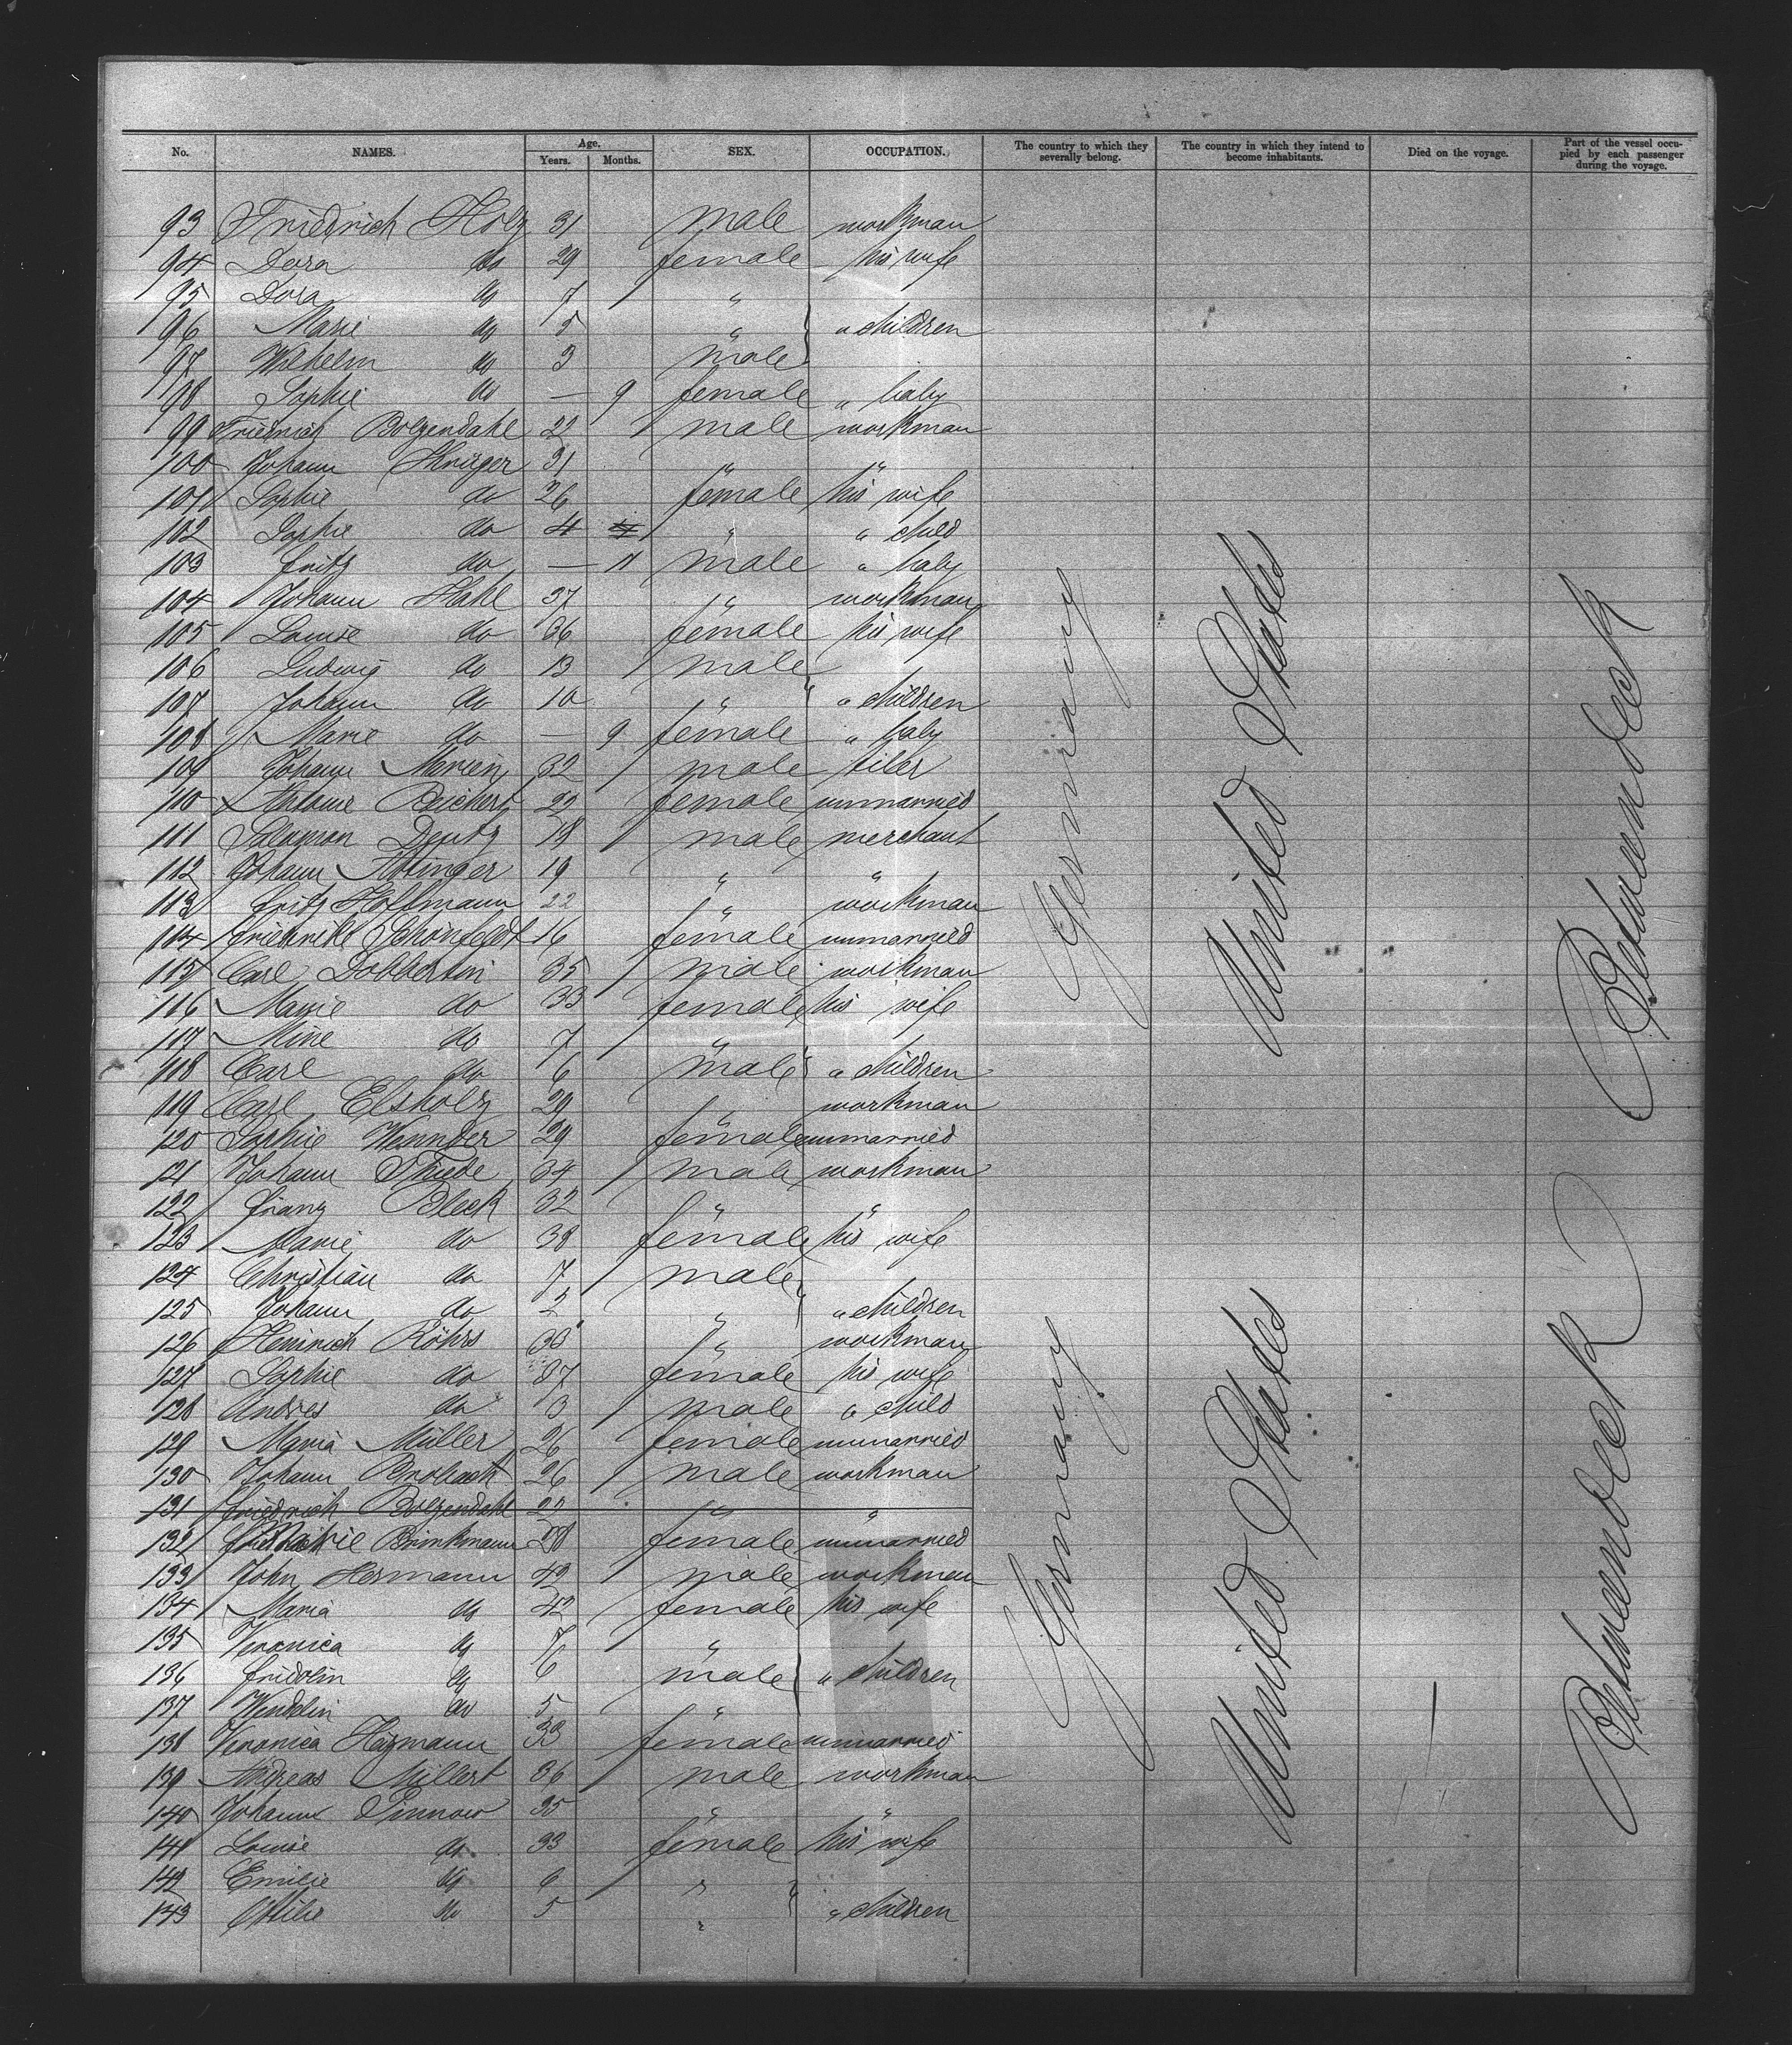 No. NAMES. Age. Years. Months. SEX. OCCUPATION. The country to which they severally belong. The country in which they intend to become inhabitants. Died on the voyage. Part of the vessel occupied by each passenger during the voyage.
93 Friedrich Holz 31 male workman
94 Dora do 29 female his wife
95 Dora do 7 "
96 Marie do 5 " " children
97 Wilhelm do 3 male
98 Sophie do — 9 female " baby
99 Friedrich Bolzendahl 22 male workman
100 Johann Krüger 31 " "
101 Sophie do 26 female his wife
102 Sophie do 4 " " child
103 Fritz do — 11 male " baby
104 Johann Hahl 37 " workman
105 Louise do 36 female his wife
106 Ludwig do 13 male
107 Johann do 10 " " children
108 Marie do — 9 female " baby
109 Johann 32 male tiler
110 Reichert 22 female unmarried
111 Salomon Deutz 18 male merchant
112 Johann 19 " "
113 Fritz Hoffmann 22 " workman
114 Friedrike Schönfeldt 16 female unmarried
115 Carl Dobbertin 35 male workman
116 Marie do 33 female his wife
117 Mine do 7 "
118 Carl do 6 male " children
119 Carl Elsholz 29 " workman
120 Sophie 29 female unmarried
121 Johann Thiede 34 male workman
122 Franz Bleck 32 " "
123 Marie do 38 female his wife
124 Christian do 7 male
125 Johann do 2 " " children
126 Heinrich Röhrs 33 " workman
127 Sophie do 37 female his wife
128 Andres do 3 male " child
129 Maria Müller 26 female unmarried
130 Johann Brobach 26 male workman
131 Friedrich Bolzendahl 22 " "
132 Brinkmann 28 female unmarried
133 John Hermann 42 male workman
134 Maria do 42 female his wife
135 Veronica do 7 "
136 Fridolin do 6 male " children
137 Wendelin do 5 "
138 Veronica 33 female unmarried
139 Andreas Millert 36 male workman
140 Johann Pinnow 35 " "
141 Louise do 33 female his wife
142 Emilie do 6 "
143 Ottilie do 5 " " children
Germany
United States
Betweendeck
Germany
United States
Betweendeck